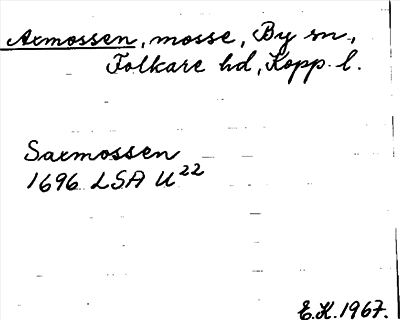 Axmossen, mosse, By sn,
Folkare hd, Kopp. l.
Saxmossen
1696 LSA U²²
E.K. 1967.